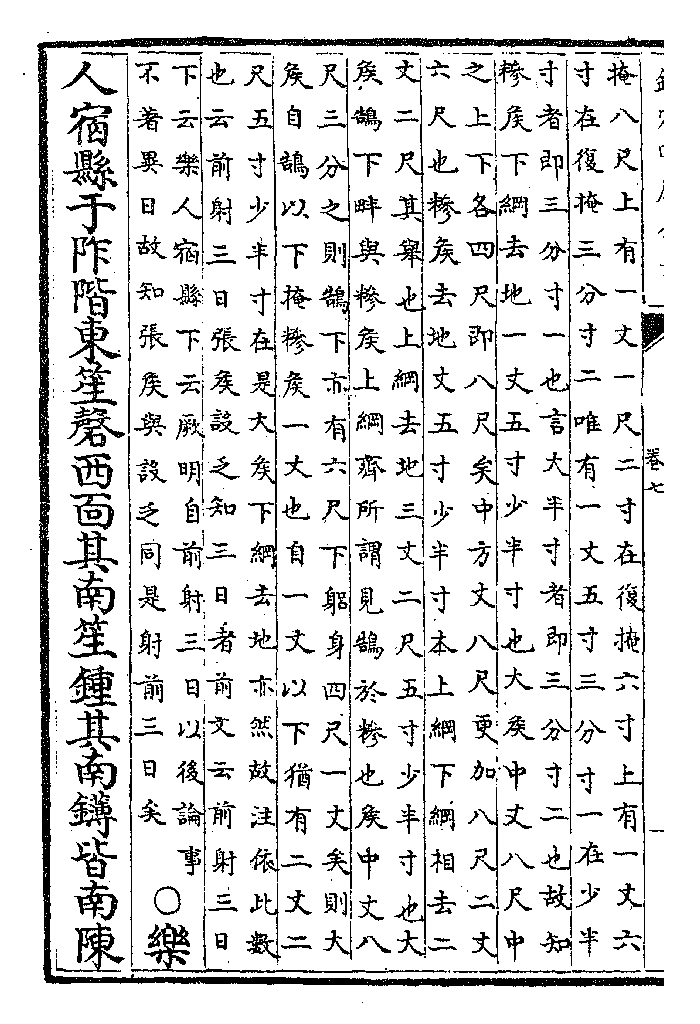 卷七
掩八尺上有一丈一尺二寸在復掩六寸上有一丈六
寸在復掩三分寸二唯有一丈五寸三分寸一在少半
寸者即三分寸一也言大半寸者即三分寸二也故知
糝矦下綱去地一丈五寸少半寸也大矦中丈八尺中
之上下各四尺即八尺矣中方丈八尺更加八尺二丈
六尺也糝矦去地丈五寸少半寸本上綱下綱相去二
丈二尺其舉也上綱去地三丈二尺五寸少半寸也大
矦鵠下畔與糝矦上綱齊所謂見鵠於糝也矦中丈八
尺三分之則鵠下亦有六尺下躬身四尺一丈矣則大
矦自鵠以下掩糝矦一丈也自一丈以下猶有二丈二
尺五寸少半寸在是大矦下綱去地亦然故注依比數
也云前射三日張矦設乏知三日者前文云前射三日
下云樂人宿縣下云厥明自前射三日以後論事
不著異日故知張矦與設乏同是射前三日矣
○樂
人宿縣于阼階東笙磬西面其南笙鍾其南鑮皆南陳